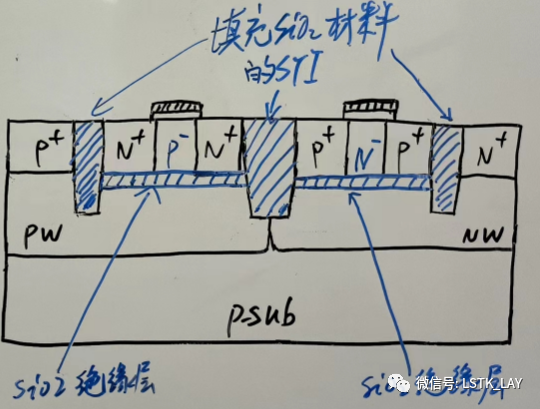 填充SiO2材料
的STI
P+ N+ P- N+ P+ N- P+ N+
PW NW
P-sub
SiO2绝缘层 SiO2绝缘层
微信号: LSTK_LAY